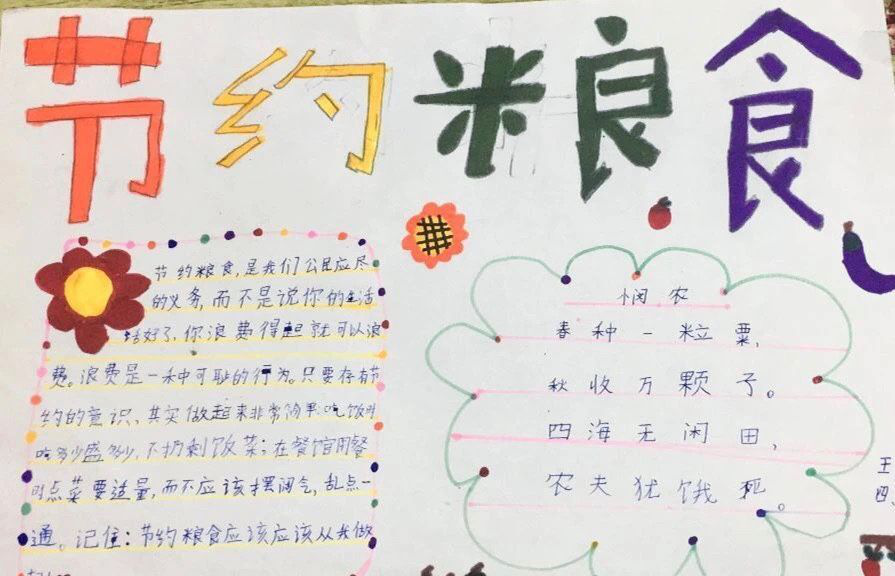 节约粮食
节约粮食,是我们公民应尽
的义务,而不是说你的生活
好了,你浪费得起就可以浪
费。浪费是一种可耻的行为。只要存有节
约的意识、其实做起来非常简单:吃饭时
吃多少盛多少,不扔剩饭菜;在餐馆用餐
时点菜要适量,而不应该摆阔气,乱点一
通。记住:节约粮食应该应该从我做
悯农
春种一粒粟,
秋收万颗子。
四海无闲田,
农夫犹饿死。
王
四、